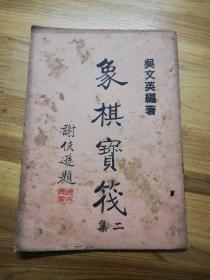 吳文英編著
象棋寶筏
二集
謝俠遜題